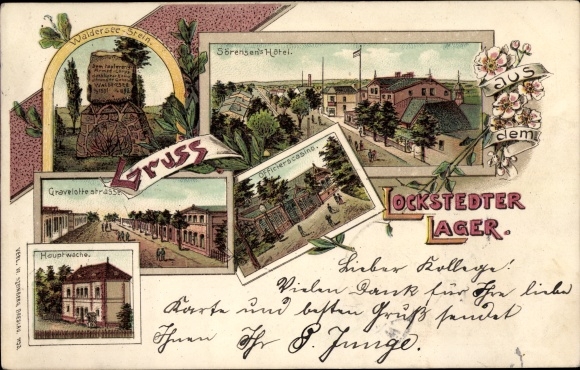 Waldersee-Stein.
Sörensen's Hôtel.
Gruss
aus
dem
Officierscasino.
Gravelottestrasse.
LOCKSTEDTER
LAGER.
Hauptwache.
Lieber Kollege!
Vielen Dank für Ihre liebe
Karte und besten Gruß sendet
Ihnen Ihr P. Junge.